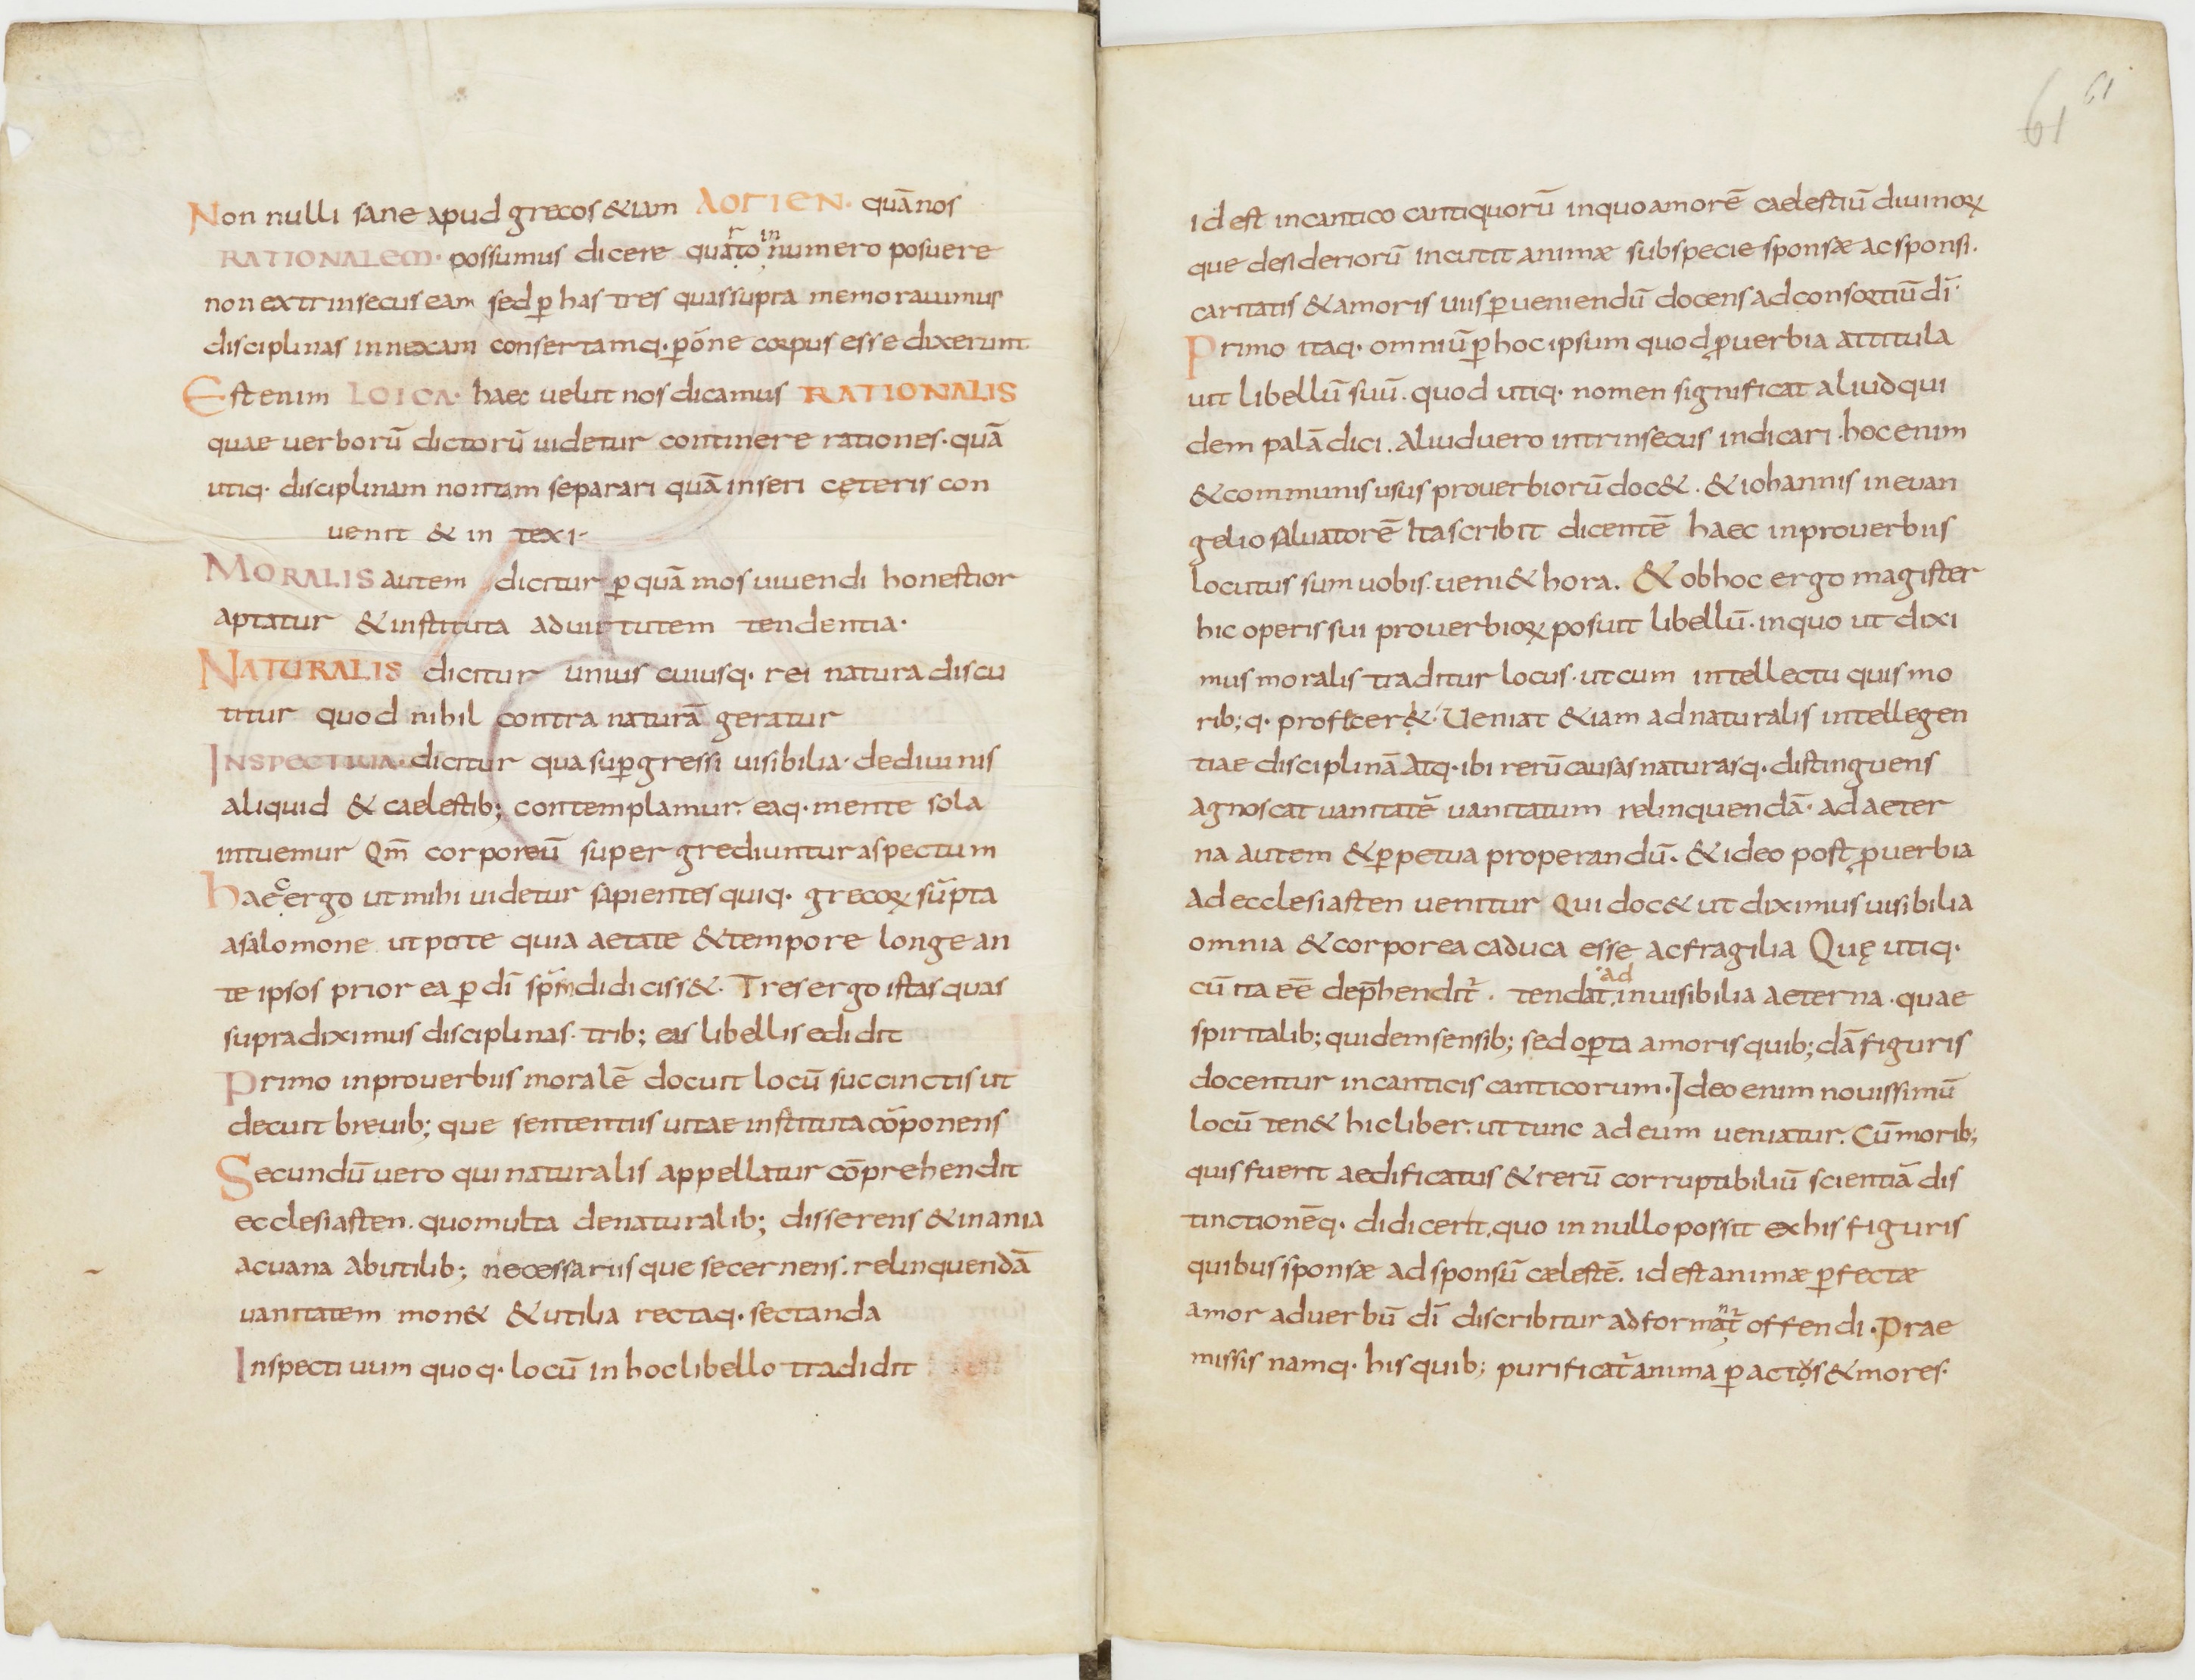 Non nulli sane apud grecos &iam ΛΟΓΙΕΝ· quā nos
RATIONALEM· possumus dicere quarto in numero posuere
non extrinsecus eam sed ꝑ has tres quas supra memorauimus
disciplinas innexam consertamq· ꝑ ōne corpus esse dixerunt
Est enim LOICA· haec uelut nos dicamus RATIONALIS
quae uerborū dictorū uidetur continere rationes· quā
utiq· disciplinam non tam separari quā inseri cęteris con
uenit & in texi·
MORALIS autem dicitur ꝑ quā mos uiuendi honestior
aptatur & instituta ad uirtutem tendentia·
NATURALIS dicitur unius cuiusq· rei natura discu
titur quod nihil contra naturā geratur
INSPECTIUA· dicitur qua suꝑgressi uisibilia· de diuinis
aliquid & caelestib; contemplamur. eaq· mente sola
intuemur Qm̄ corporeū super grediuntur aspectum
haec ergo ut mihi uidetur sapientes quiq· grecoꝝ sūpta
a salomone ut pote quia aetate & tempore longe an
te ipsos prior ea ꝑ dī spm̄ didiciss&· Tres ergo istas quas
supra diximus disciplinas· trib; eas libellis edidit
Primo in prouerbiis moralē docuit locū succinctis ut
decuit breuib; que sententiis uitae instituta cōponens
Secundū uero qui naturalis appellatur cōprehendit
ecclesiasten. quo multa de naturalib; disserens & inania
ac uana ab utilib; necessariis que secernens. relinquendā
uanitatem mon& & utilia rectaq· sectanda
Inspecti uum quoq· locū in hoc libello tradidit
61 61
id est in cantico cantiquorū in quo amorē caelestiū diuinoꝝ
que desideriorū incutit animæ sub specie sponsæ ac sponsi.
caritatis & amoris uiis ꝑueniendū docens ad consortiū dī·
Primo itaq· omniū ꝑ hoc ipsum quod ꝓuerbia attitula
uit libellū suū. quod utiq· nomen significat aliud qui
dem palā dici. aliud uero intrinsecus indicari· hoc enim
& communis usus prouerbiorū doc&. & iohannis in euan
gelio saluatorē Ita scribit dicentē haec in prouerbiis
locutus sum uobis. ueni& hora. & ob hoc ergo magister
hic operis sui prouerbioꝝ posuit libellū· in quo ut dixi
mus moralis traditur locus· ut cum intellectu quis mo
rib;q· proficer&· Ueniat &iam ad naturalis intellegen
tiae disciplinā Atq· ibi rerū causas naturasq· distinguens
agnoscat uanitatē uanitatum relinquendā· ad aeter
na autem & ꝑpetua properandū. & ideo post ꝓuerbia
ad ecclesiasten uenitur Qui doc& ut diximus uisibilia
omnia & corporea caduca esse ac fragilia Quę utiq·
cū ita eē dep̄hendit̄. tendat ad inuisibilia aeterna· quae
spiritalib; quidem sensib; sed oꝑta amoris quib;dā figuris
docentur in canticis canticorum· Ideo enim nouissimū
locū ten& hic liber. ut tunc ad eum ueniatur. Cū morib;
quis fuerit aedificatus & rerū corruptibiliū scientiā dis
tinctionēq· didicerit. quo in nullo possit ex his figuris
quibus sponsæ ad sponsū cælestē. id est animæ ꝑfectæ
amor ad uerbū dī discribitur ad formant̄ offendi· Prae
missis namq· his quib; purificat̄ anima ꝑ actꝰs & mores·